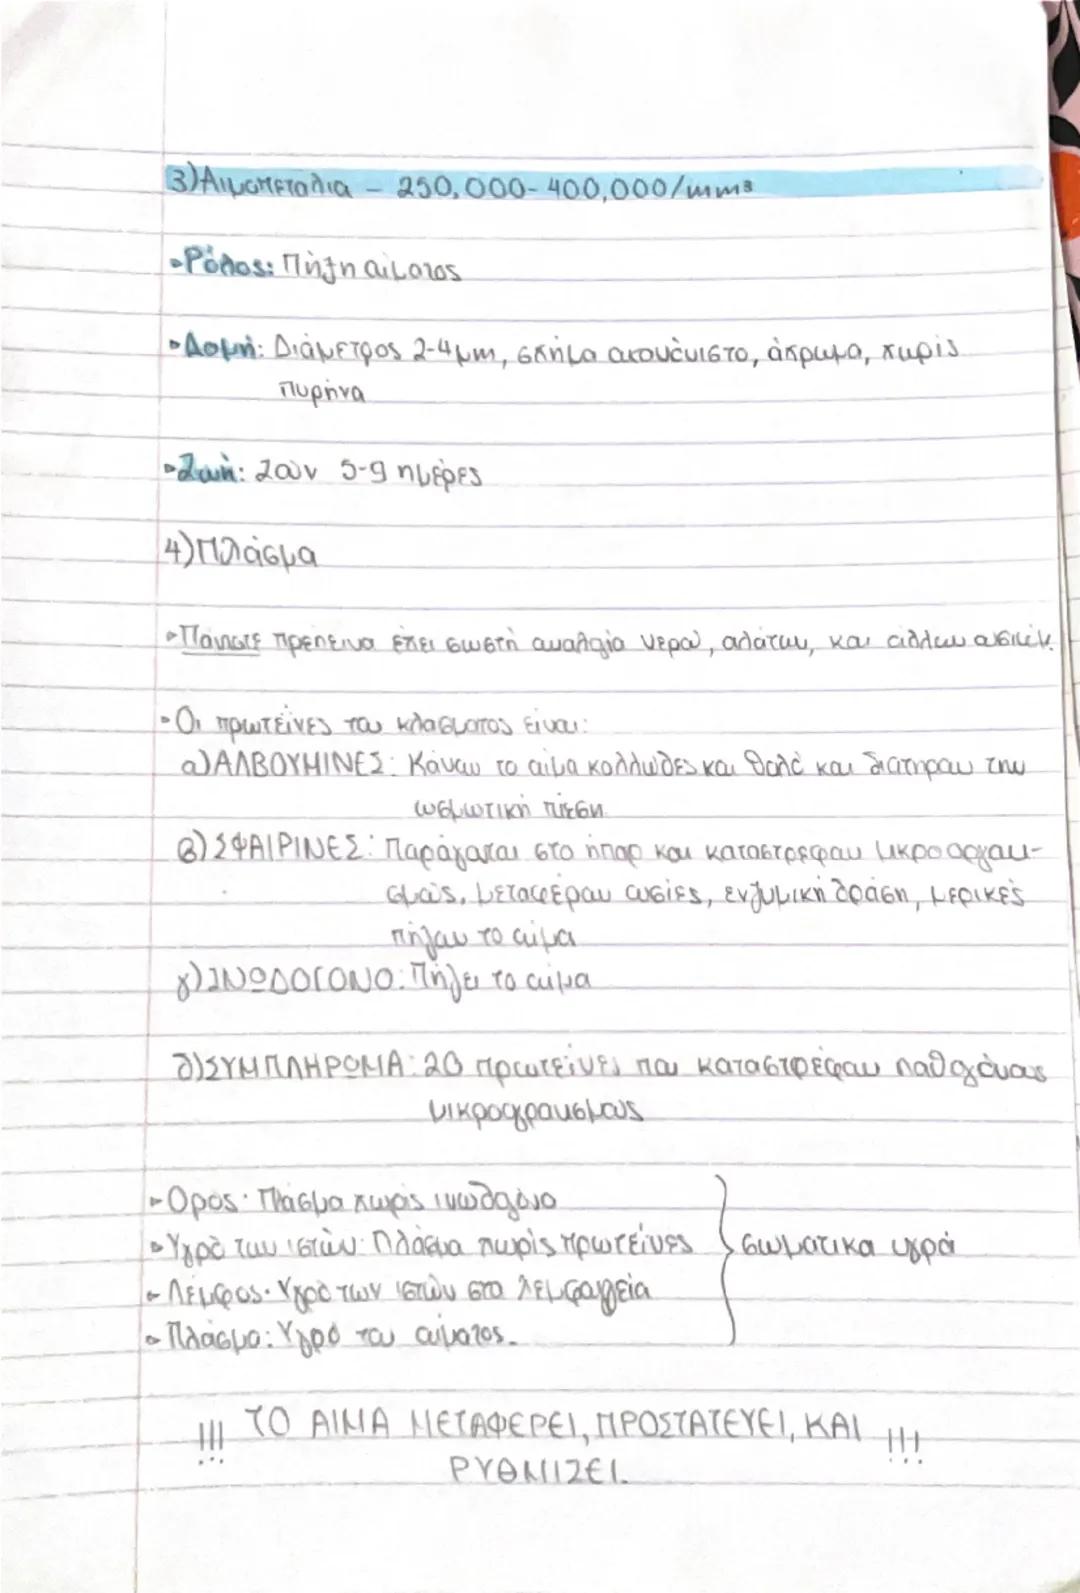 3) Αιμοπετάλια - 250,000-400,000/mm³
Ρόλος: Πήξη αίματος
Δομή: Διάμετρος 2-4μm, σχήμα ακανόνιστο, άχρωμα, χωρίς
πυρήνα
Ζωή: Ζουν 5-9 ημέρες
4) Πλάσμα
Πάντοτε πρέπει να έχει σωστή αναλογία νερού, αλάτων, και άλλων ουσιών.
Οι πρωτεΐνες του πλάσματος είναι:
α) ΑΛΒΟΥΜΙΝΕΣ: Κάνουν το αίμα κολλώδες και θολό και διατηρούν την
ωσμωτική πίεση
β) ΣΦΑΙΡΙΝΕΣ: Παράγονται στο ήπαρ και καταστρέφουν μικροοργανι-
σμούς, μεταφέρουν ουσίες, ενζυμική δράση, μερικές
πήζουν το αίμα
γ) ΙΝΩΔΟΓΟΝΟ: Πήζει το αίμα
δ) ΣΥΜΠΛΗΡΩΜΑ: 20 πρωτεΐνες που καταστρέφουν παθογόνους
μικροοργανισμούς
Ορός: Πλάσμα χωρίς ινωδογόνο
Υγρό των ιστών: Πλάσμα χωρίς πρωτεΐνες
Λέμφος: Υγρό των ιστών στα λεμφαγγεία
Πλάσμα: Υγρό του αίματος.
σωματικά υγρά
!!! ΤΟ ΑΙΜΑ ΜΕΤΑΦΕΡΕΙ, ΠΡΟΣΤΑΤΕΥΕΙ, ΚΑΙ !!!
ΡΥΘΜΙΖΕΙ.